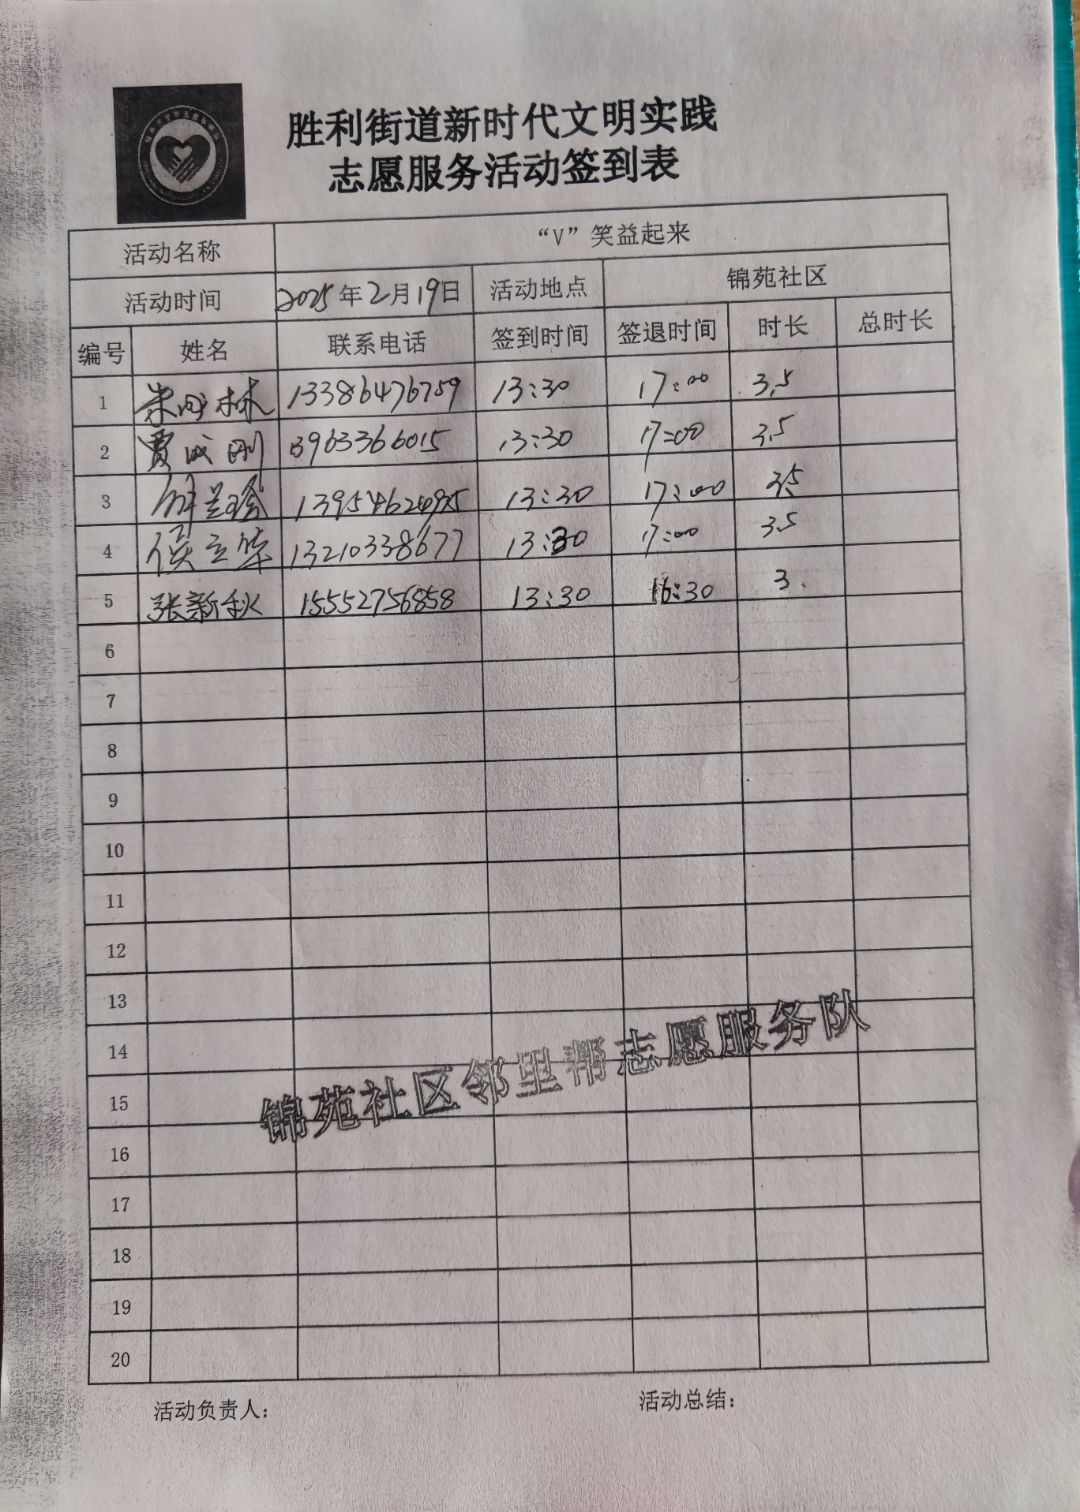 胜利街道新时代文明实践
志愿服务活动签到表
活动名称 “V”笑益起来
活动时间 2025年2月19日 活动地点 锦苑社区
编号 姓名 联系电话 签到时间 签退时间 时长 总时长
1 朱成林 13386476759 13:30 17:00 3.5
2 贾成刚 13963366015 13:30 17:00 3.5
3 13:30 17:00 3.5
4 侯立华 13210338677 13:30 17:00 3.5
5 张新秋 15552756858 13:30 16:30 3.
6
7
8
9
10
11
12
13
14
15
16
17
18
19
20
锦苑社区邻里帮志愿服务队
活动负责人： 活动总结：